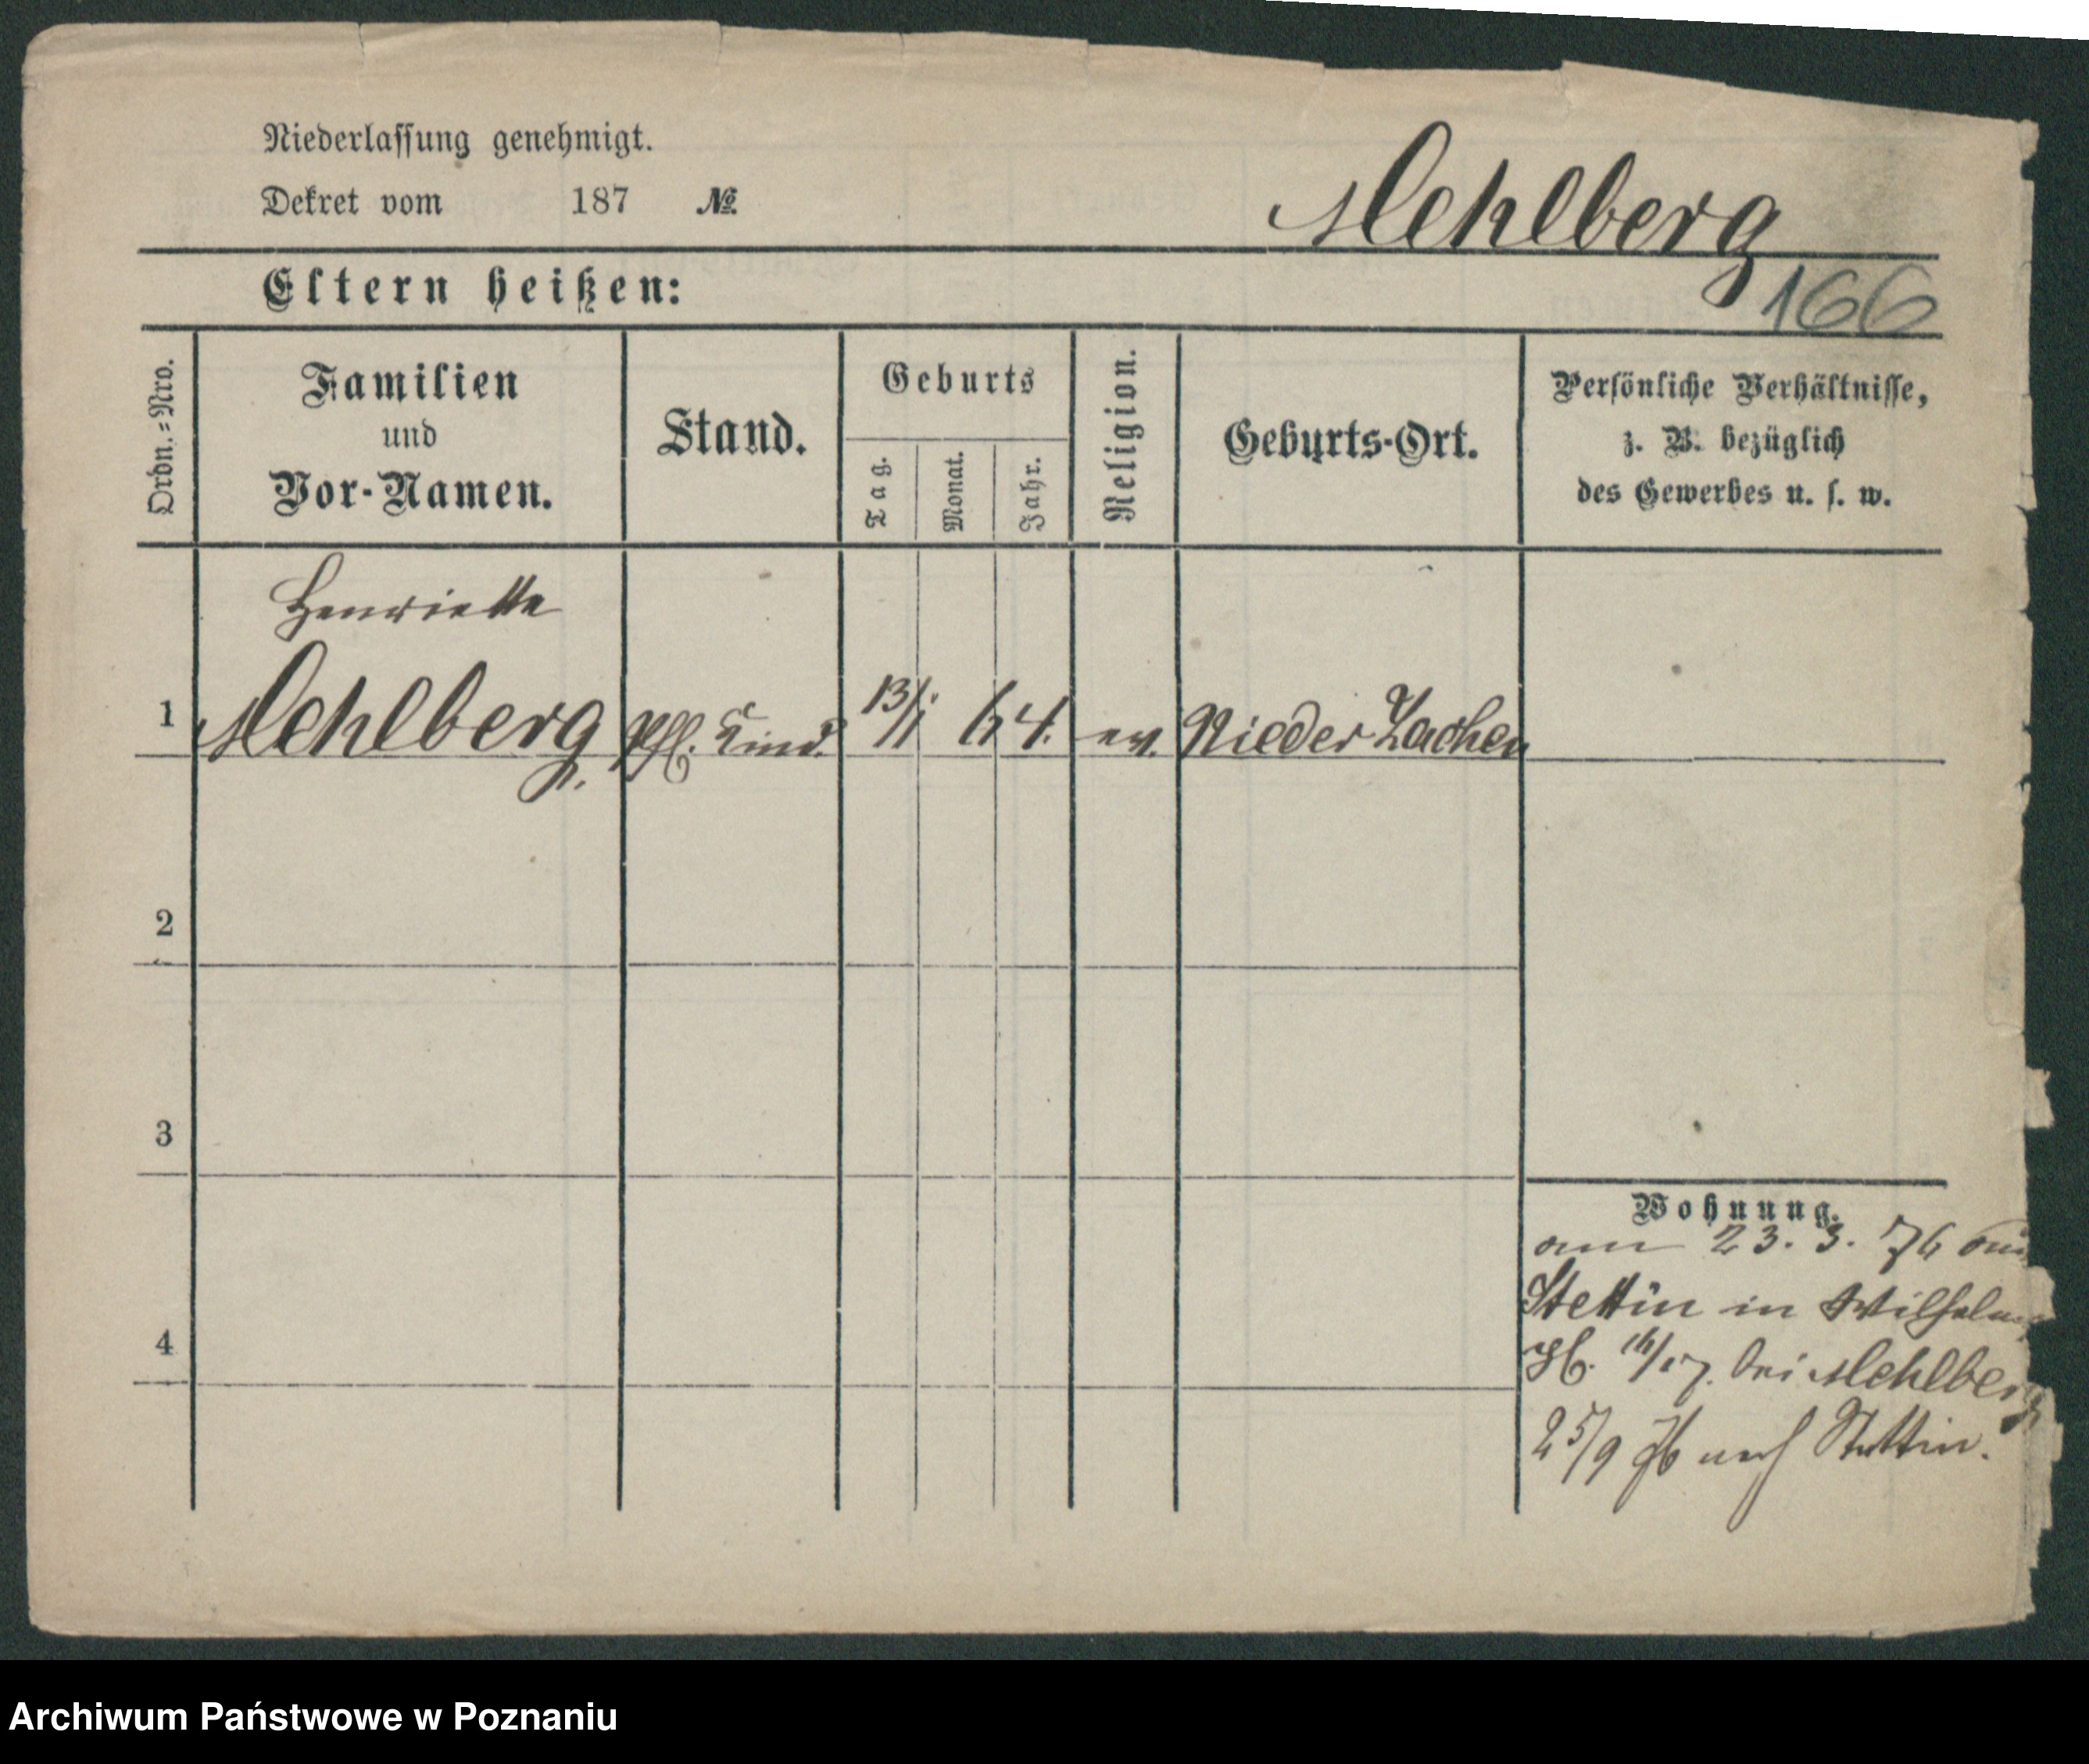 Niederlassung genehmigt.
Dekret vom 187 №
Mehlberg
Eltern heißen:
166
Ordn.-Nro.
Familien
und
Vor-Namen.
Stand.
Geburts
Tag.
Monat.
Jahr.
Religion.
Geburts-Ort.
Persönliche Verhältnisse,
z. B. bezüglich
des Gewerbes u. s. w.
Henriette
1 Mehlberg Pfl. Kind. 13/1 64. ev. Nieder Zachen
2
3
4
Wohnung.
am 23. 3. 76 aus
Stettin in Wilhelms
bei Mehlberg
25/9 nach Stettin.
Archiwum Państwowe w Poznaniu